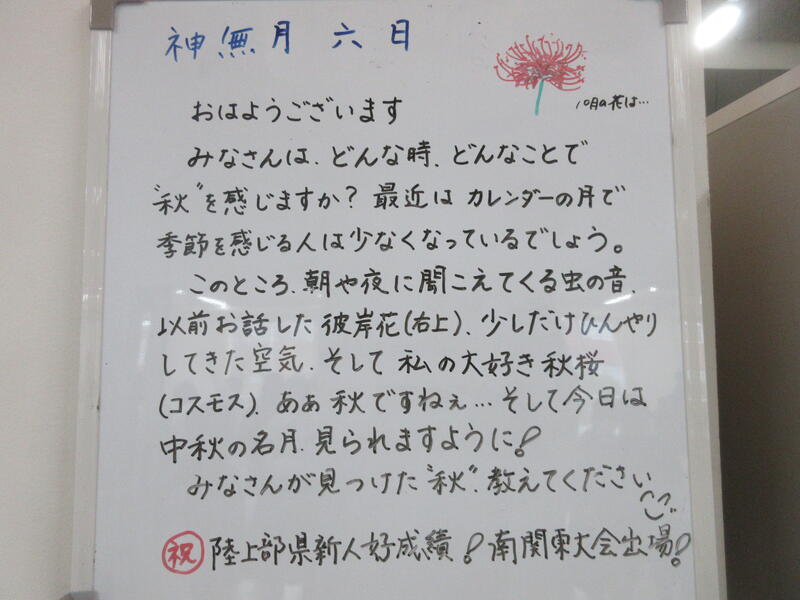 神無月 六日
10月の花は…
おはようございます
みなさんは、どんな時、どんなことで
"秋"を感じますか？最近はカレンダーの月で
季節を感じる人は少なくなっているでしょう。
このところ、朝や夜に聞こえてくる虫の音、
以前お話した彼岸花(右上)、少しだけひんやり
してきた空気、そして私の大好き秋桜
(コスモス)、ああ秋ですねぇ…そして今日は
中秋の名月、見られますように!
みなさんが見つけた"秋"、教えてください
祝 陸上部県新人好成績!南関東大会出場!